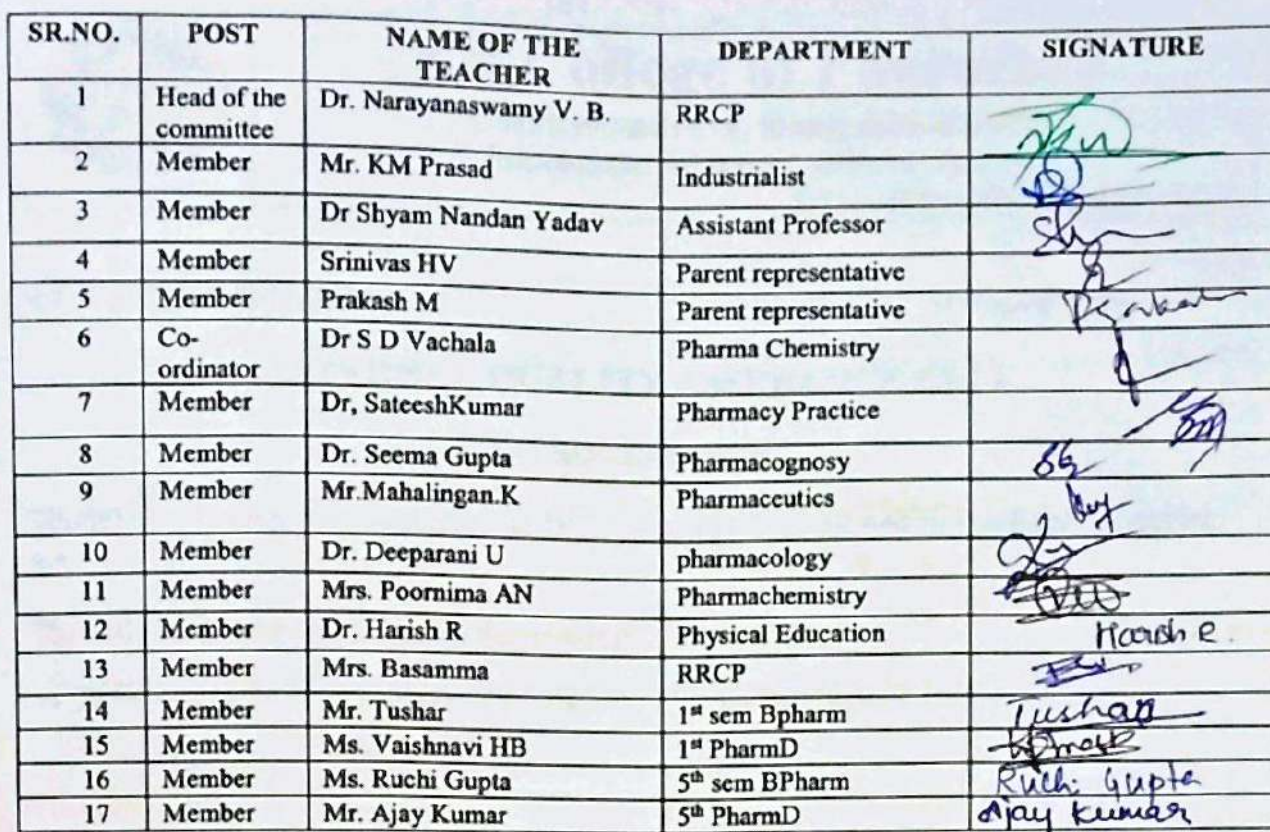 SR.NO. POST NAME OF THE DEPARTMENT SIGNATURE
TEACHER
1 Head of the Dr. Narayanaswamy V. B. RRCP
committee
2 Member Mr. KM Prasad Industrialist
3 Member Dr Shyam Nandan Yadav Assistant Professor
4 Member Srinivas HV Parent representative
5 Member Prakash M Parent representative
6 Co- Dr S D Vachala Pharma Chemistry
ordinator
7 Member Dr, SateeshKumar Pharmacy Practice
8 Member Dr. Seema Gupta Pharmacognosy SG
9 Member Mr.Mahalingan.K Pharmaceutics
10 Member Dr. Deeparani U pharmacology
11 Member Mrs. Poornima AN Pharmachemistry
12 Member Dr. Harish R Physical Education Harish R.
13 Member Mrs. Basamma RRCP
14 Member Mr. Tushar 1st sem Bpharm Tushar
15 Member Ms. Vaishnavi HB 1st PharmD
16 Member Ms. Ruchi Gupta 5th sem BPharm Ruchi Gupta
17 Member Mr. Ajay Kumar 5th PharmD Ajay Kumar